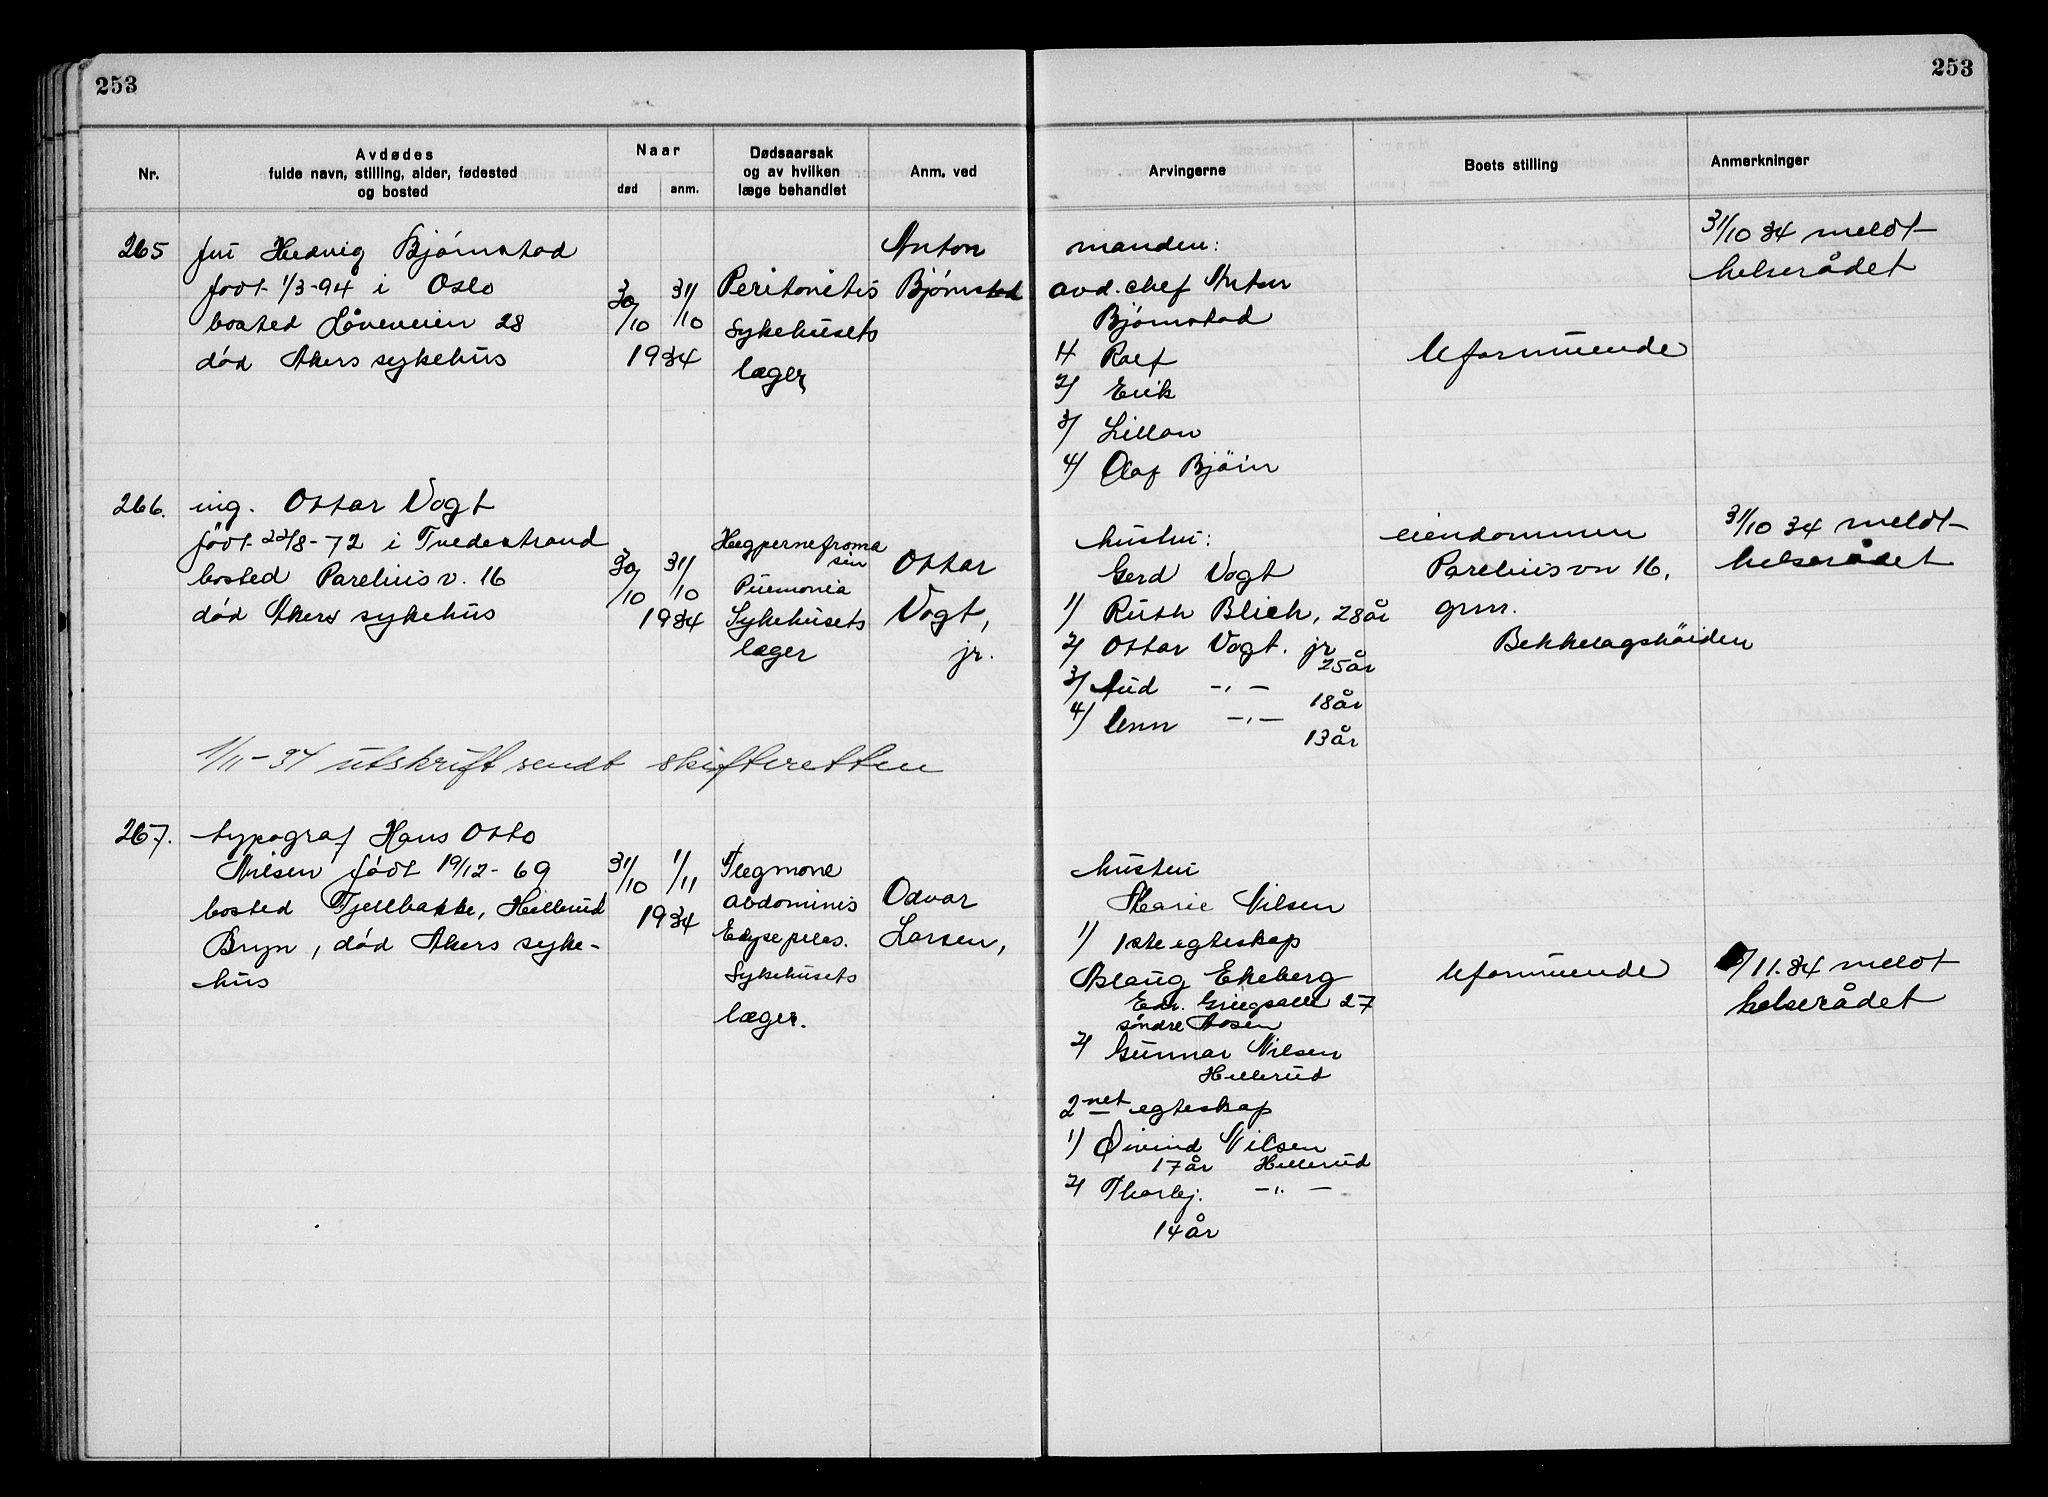 253
253
Nr.
Avdødes
fulde navn, stilling, alder, fødested
og bosted
Naar
død
anm.
Dødsaarsak
og av hvilken
læge behandlet
Anm. ved
Arvingerne
Boets stilling
Anmerkninger
265
fru Hedvig Bjørnstad
født 1/3-94 i Oslo
bosted Låveveien 28
død Akers sykehus
30/10
31/10
1934
Peritonitis
Sykehusets
læger
Anton
Bjørnstad
manden:
avd. chef Anton
Bjørnstad
1/ Rolf
2/ Erik
3/ Lillan
4/ Olaf Bjørn
Uformuende
31/10 34 meldt
helserådet
266.
ing. Ottar Vogt
født 22/8-72 i Tvedestrand
bosted Parelius v. 16
død Akers sykehus
30/10
31/10
1934
Puemonia
Sykehusets
læger
Ottar
Vogt,
jr.
hustru:
Gerd Vogt
1/ Ruth Blich, 28 år
2/ Ottar Vogt. jr
25 år
3/ Aud -"-
18 år
4/ Unn -"-
13 år
eiendommen
Parelius vn 16,
grnr.
Bekkelagshöiden
31/10 34 meldt
helserådet
1/11-34 utskrift sendt skifteretten
267.
typograf Hans Otto
Nilsen født 19/12-69
bosted Fjellbakke, Hellerud
Bryn, død Akers syke-
hus
31/10
1/11
1934
Flegmone
abdominis
Sykehusets
læger.
Odvar
Larsen,
hustru
Marie Nilsen
1/ 1ste egteskap
Aslaug Ekeberg
Edv. Griegsalle 27
søndre Aasen
2/ Gunnar Nilsen
Hellerud
2net egteskap
1/ Øivind Nilsen
17 år Hellerud
2/ Thorbj. -"-
14 år
Uformuende
/11.34 meldt
helserådet